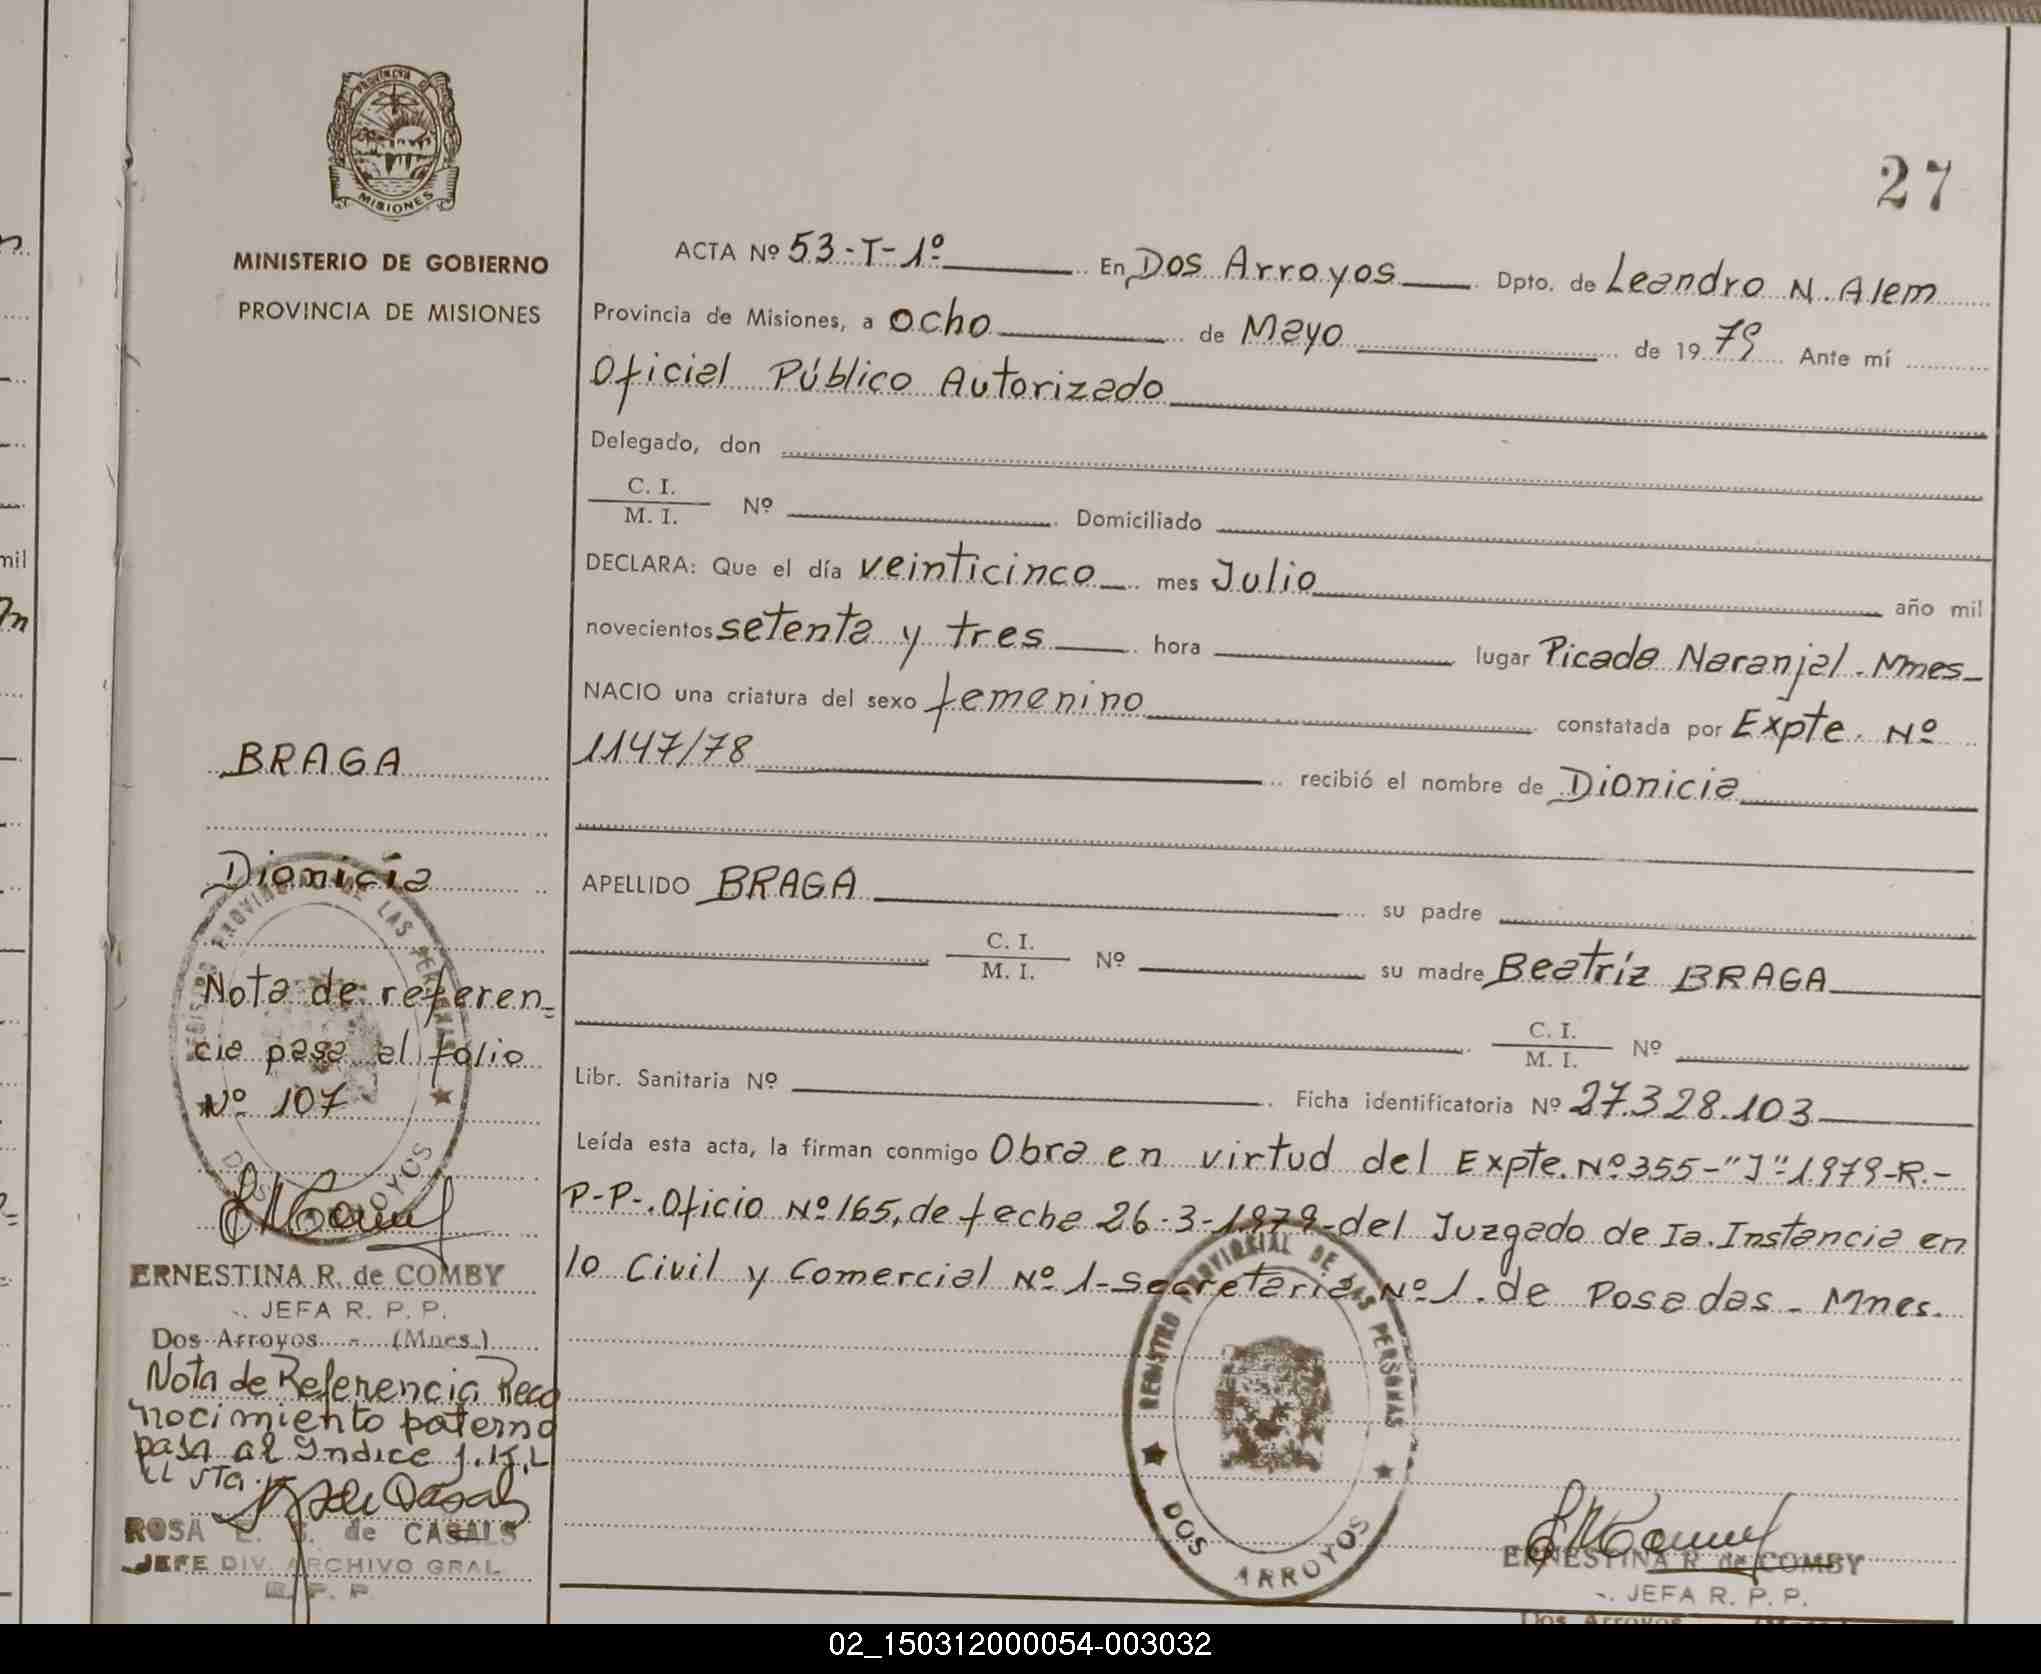 PROVINCIA DE
MISIONES
MINISTERIO DE GOBIERNO
PROVINCIA DE MISIONES
27
ACTA Nº 53-T-1º En Dos Arroyos Dpto. de Leandro N. Alem
Provincia de Misiones, a ocho de Mayo de 1979 Ante mí
Oficial Público Autorizado
Delegado, don
C. I.
M. I. Nº Domiciliado
DECLARA: Que el día veinticinco mes Julio año mil
novecientos setenta y tres hora lugar Picada Naranjal. Mnes-
NACIO una criatura del sexo femenino constatada por Expte. Nº
1147/78 recibió el nombre de Dionicia
APELLIDO BRAGA su padre
C. I.
M. I. Nº su madre Beatríz BRAGA
C. I.
M. I. Nº
Libr. Sanitaria Nº Ficha identificatoria Nº 27.328.103
Leída esta acta, la firman conmigo Obra en virtud del Expte. Nº 355-"J"-1979-R.-
P-P-. Oficio Nº 165, de fecha 26-3-1979-del Juzgado de Ia. Instancia en
lo Civil y Comercial Nº 1-Secretaria Nº 1. de Posadas - Mnes.
REGISTRO PROVINCIAL DE LAS PERSONAS
DOS ARROYOS
ERNESTINA R. de COMBY
JEFA R. P. P.
Dos Arroyos (Mnes.)
BRAGA
Dionicia
Nota de referen-
cia pasa al folio
Nº 107
REGISTRO PROVINCIAL DE LAS PERSONAS
DOS ARROYOS
ERNESTINA R. de COMBY
JEFA R. P. P.
Dos Arroyos - (Mnes.)
Nota de Referencia Reco
nocimiento paterno
pasa al Indice
ROSA E. S. de CASALS
JEFE DIV. ARCHIVO GRAL.
R. P. P.
mil
02_150312000054-003032